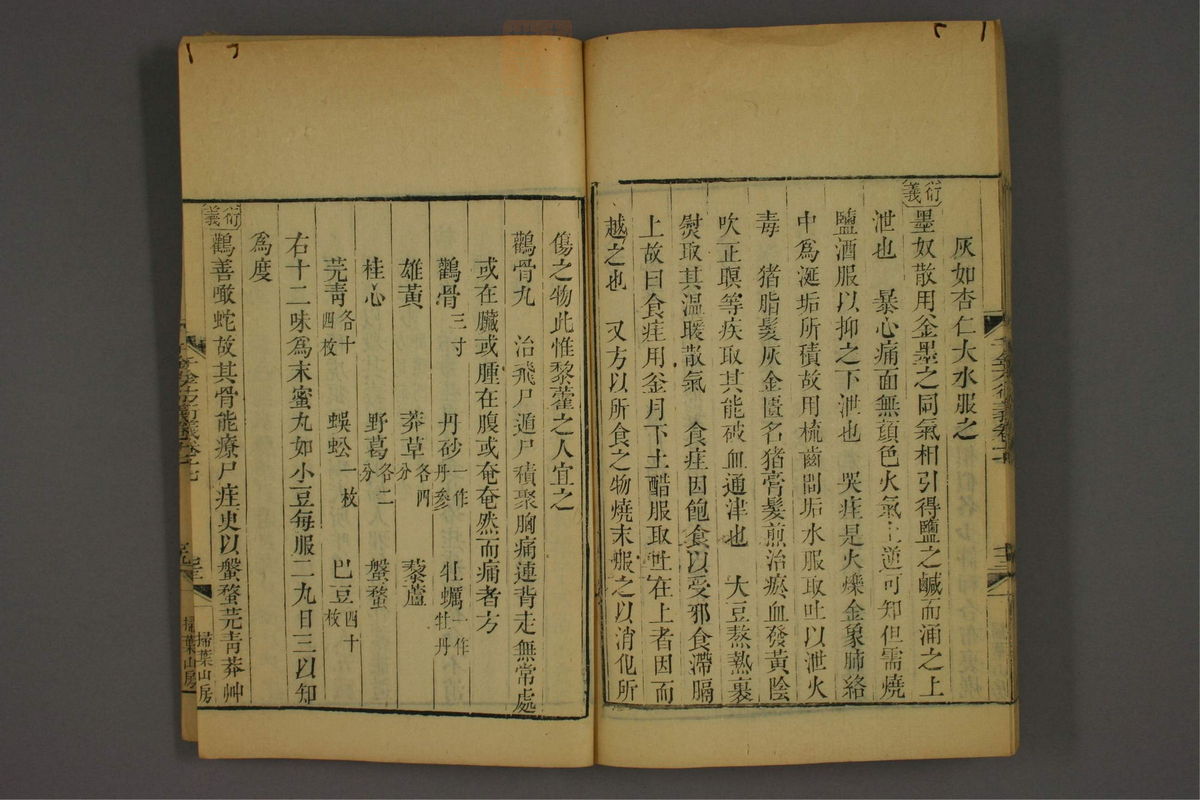 灰如杏仁大水服之
衍義
墨奴散用釜墨之同氣相引得鹽之鹹而涌之上
泄也　暴心痛面無顔色火氣上逆可知但需燒
鹽酒服以抑之下泄也　哭疰是火爍金象肺絡
中為涎垢所積故用梳齒間垢水服取吐以泄火
毒　猪脂髮灰金匱名猪膏髮煎治瘀血發黃陰
吹正瞑等疾取其能破血通津也　大豆熬熱裹
熨取其温暖散氣　食疰因飽食以受邪食滯膈
上故曰食疰用釜月下土醋服取吐在上者因而
越之也　又方以所食之物燒末服之以消化所
傷之物此惟藜藿之人宜之
鸛骨丸　治飛尸遁尸積聚胸痛連背走無常處
或在臟或腫在腹或奄奄然而痛者方
鸛骨三寸　丹砂一作丹參　牡蠣一作牡丹
雄黃　莽草各四分　藜蘆
桂心　野葛各二分　盤蝥
芫青各十四枚　蜈蚣一枚　巴豆四十枚
右十二味為末蜜丸如小豆每服二丸日三以知
為度
衍義
鸛善噉蛇故其骨能療尸疰更以盤蝥芫青莽艸
掃葉山房